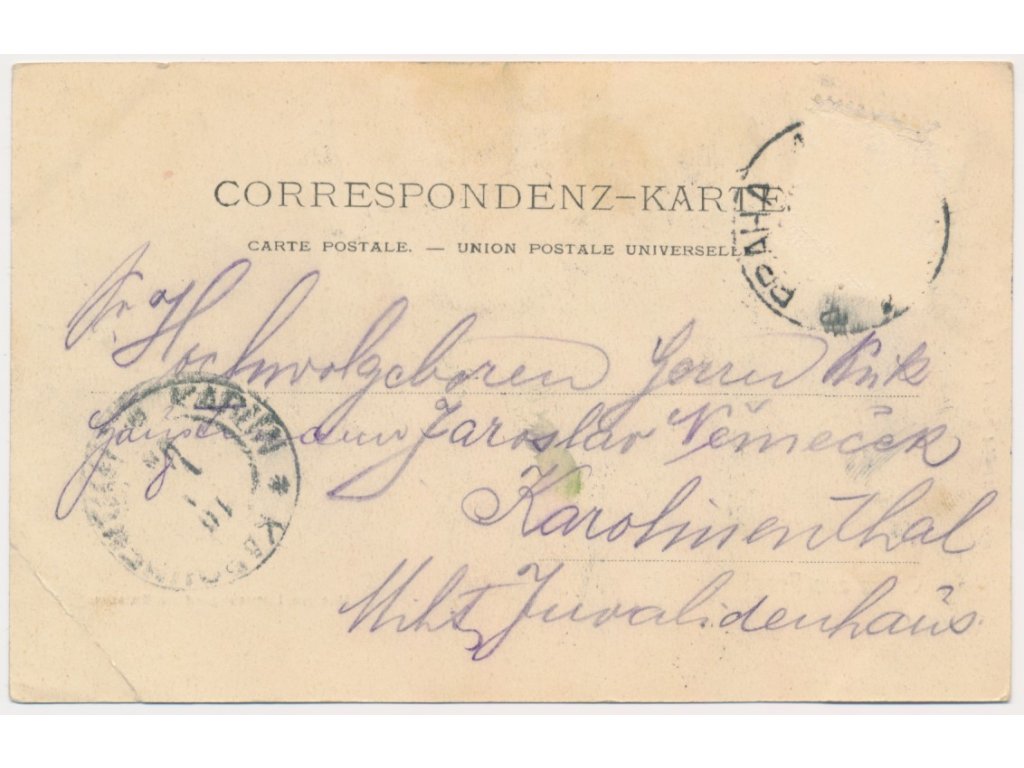 CORRESPONDENZ-KARTE
CARTE POSTALE. — UNION POSTALE UNIVERSELLE
PRAHA
Sr. Hochwolgeboren Herrn
Jaroslav Němeček
Karolinenthal
Milit. Invalidenhaus
KAROLINENTHAL * KARLÍN *